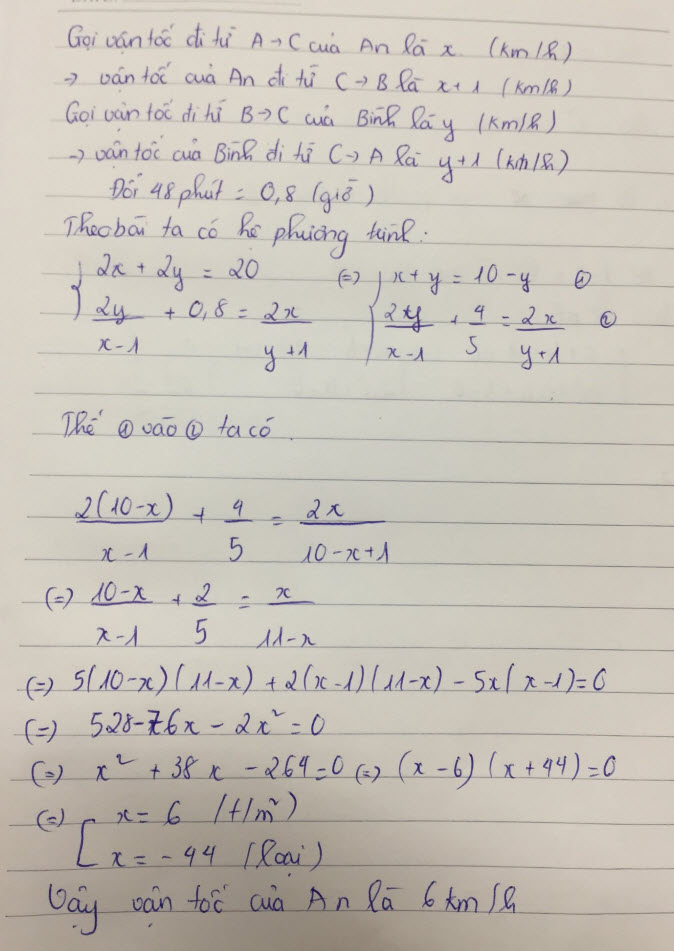 Gọi vận tốc đi từ A→C của An là x (km/h)
→ vận tốc của An đi từ C→B là x+1 (km/h)
Gọi vận tốc đi từ B→C của Bình là y (km/h)
→ vận tốc của Bình đi từ C→A là y+1 (km/h)
Đổi 48 phút = 0,8 (giờ)
Theo bài ta có hệ phương trình:
{ 2x + 2y = 20 (=) { x+y = 10-y ①
2y/(x-1) + 0,8 = 2x/(y+1) 2xy/(x-1) + 4/5 = 2x/(y+1) ②
Thế ① vào ② ta có
2(10-x)/(x-1) + 4/5 = 2x/(10-x+1)
(=) (10-x)/(x-1) + 2/5 = x/(11-x)
(=) 5(10-x)(11-x) + 2(x-1)(11-x) - 5x(x-1)=0
(=) 528-76x - 2x² = 0
(=) x² + 38x - 264=0 (=) (x-6)(x+44)=0
(=) [ x = 6 (t/m²)
x = -44 (loại)
Vậy vận tốc của An là 6 km/h